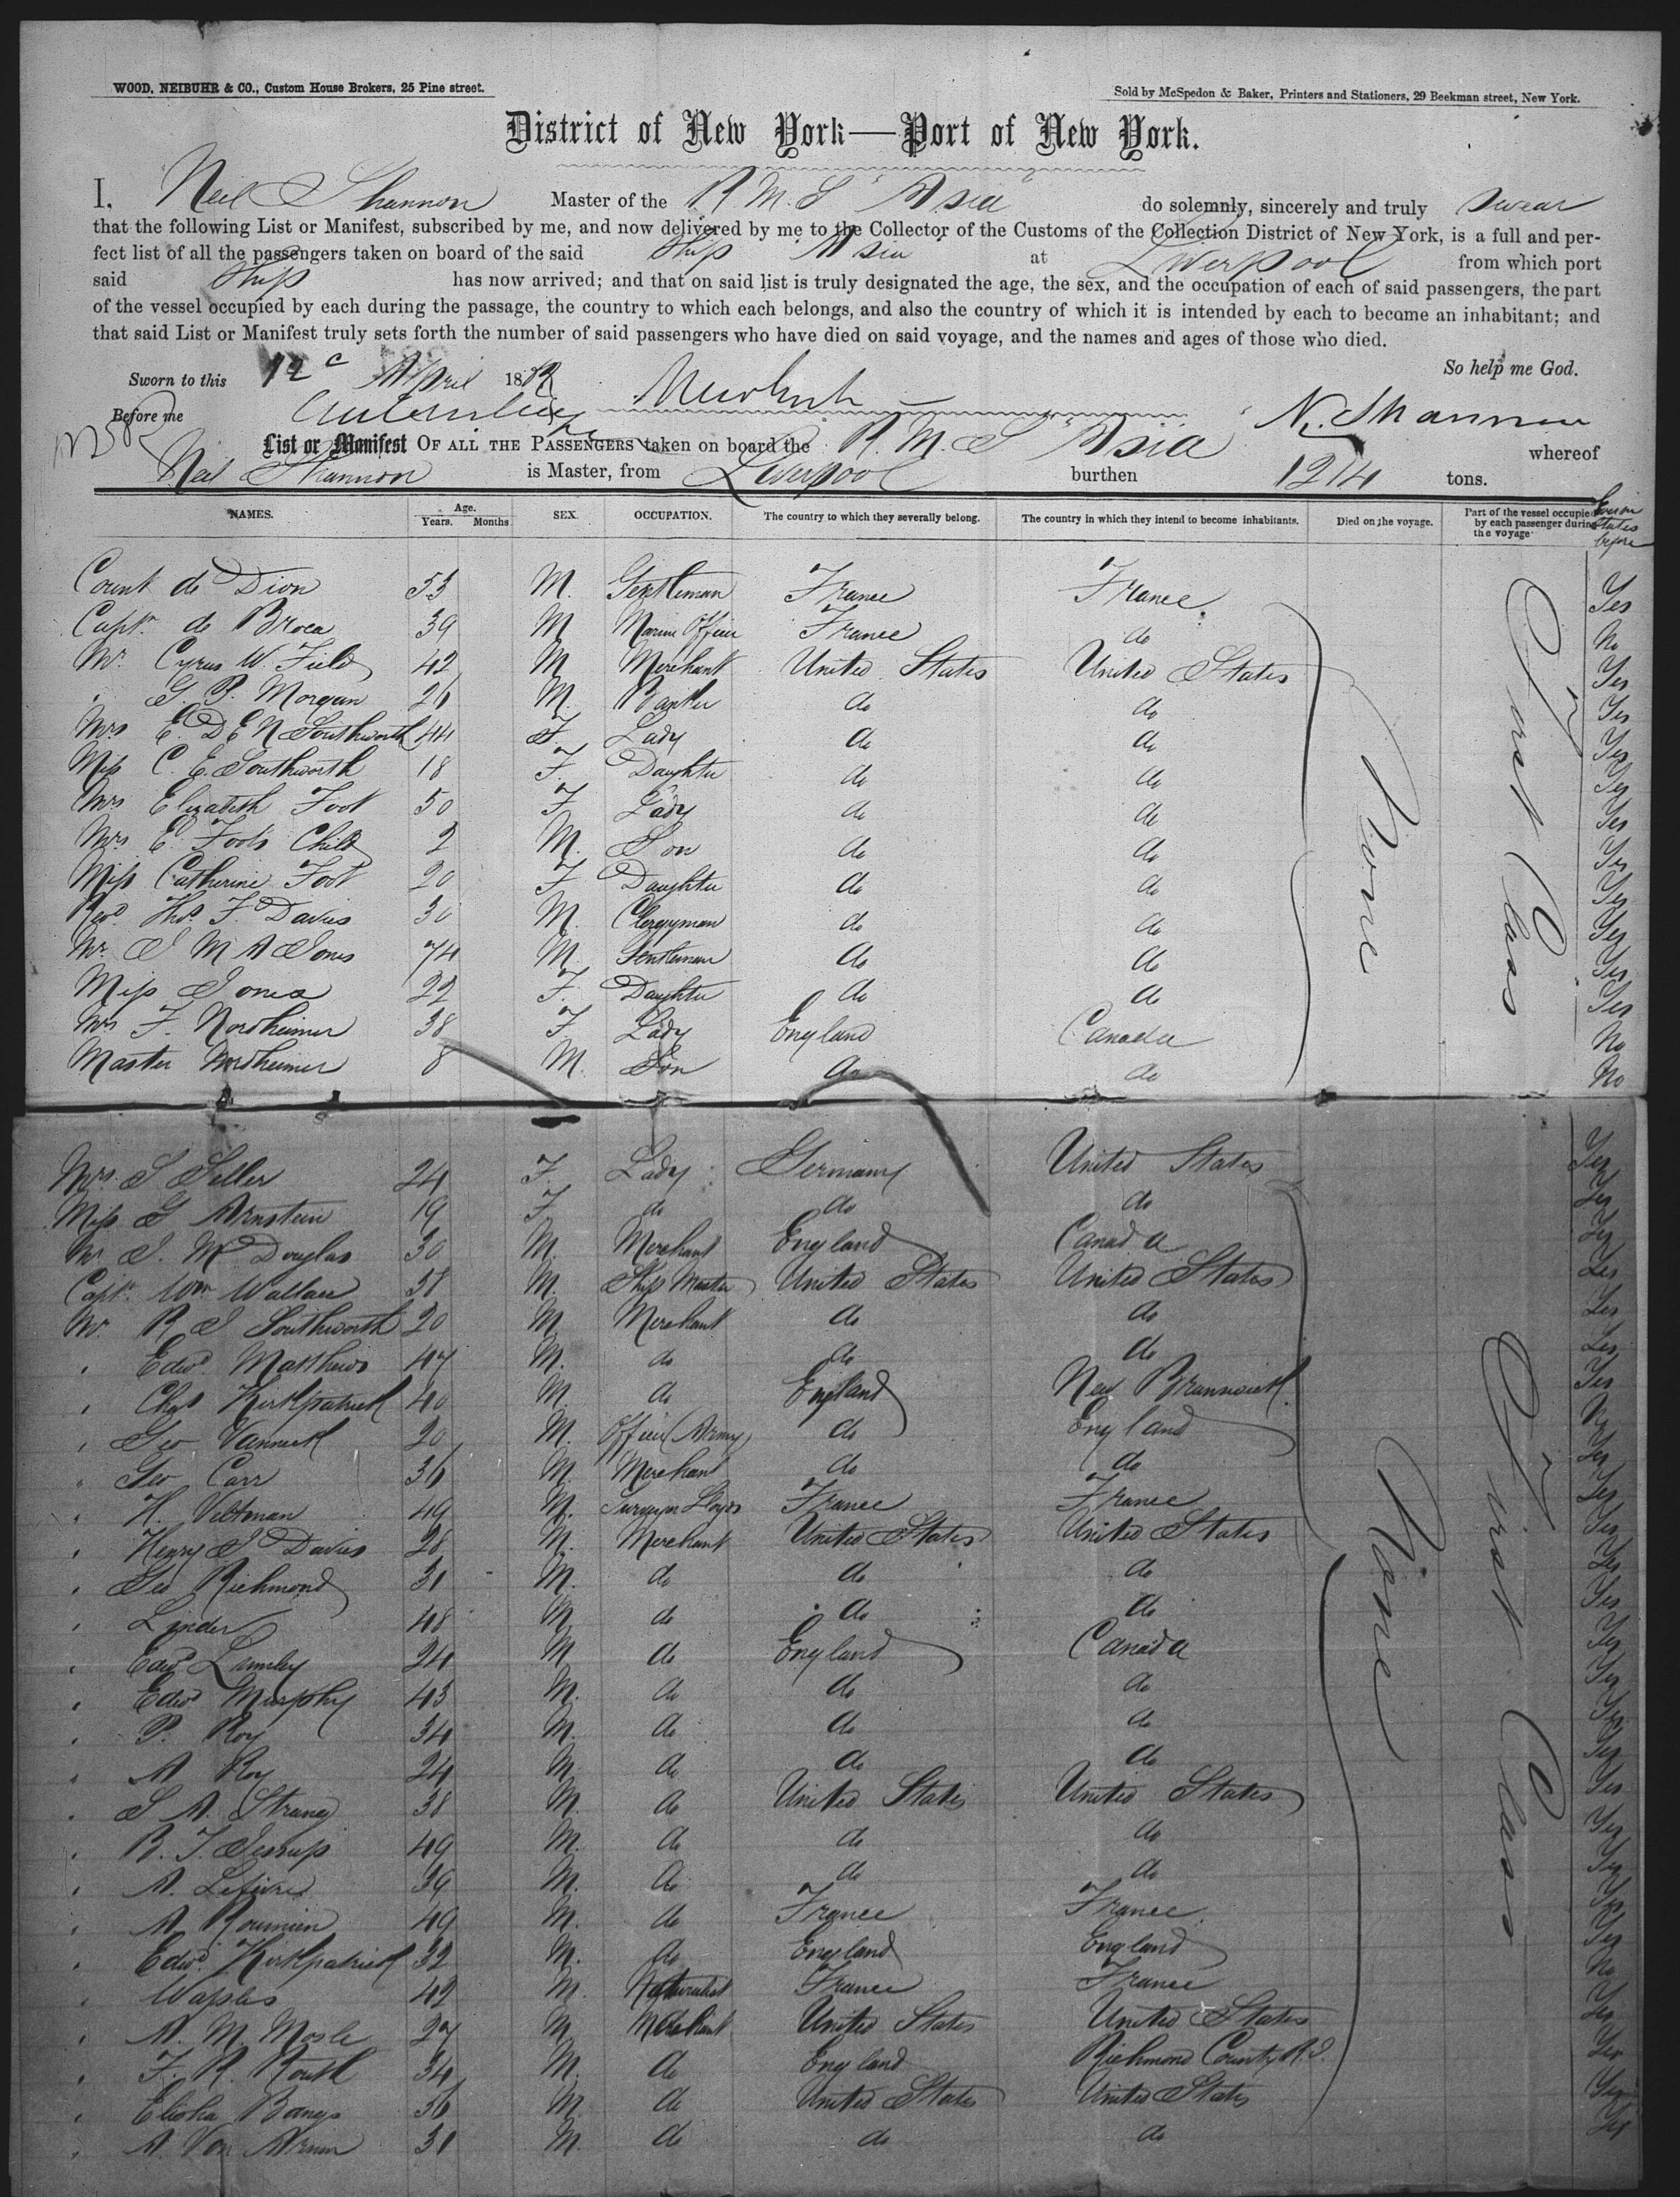 WOOD, NEIBUHR & CO., Custom House Brokers, 25 Pine street.
Sold by McSpedon & Baker, Printers and Stationers, 29 Beekman street, New York.
District of New York—Port of New York.
I, Neil Shannon Master of the R M S "Asia" do solemnly, sincerely and truly swear
that the following List or Manifest, subscribed by me, and now delivered by me to the Collector of the Customs of the Collection District of New York, is a full and per-
fect list of all the passengers taken on board of the said Ship Asia at Liverpool from which port
said Ship has now arrived; and that on said list is truly designated the age, the sex, and the occupation of each of said passengers, the part
of the vessel occupied by each during the passage, the country to which each belongs, and also the country of which it is intended by each to become an inhabitant; and
that said List or Manifest truly sets forth the number of said passengers who have died on said voyage, and the names and ages of those who died.
So help me God.
Sworn to this 12 April 18
Before me N. Shannon
List or Manifest OF ALL THE PASSENGERS taken on board the R. M. S "Asia" whereof
Neil Shannon is Master, from Liverpool burthen 1214 tons.
NAMES. Age. Years. Months SEX. OCCUPATION. The country to which they severally belong. The country in which they intend to become inhabitants. Died on the voyage. Part of the vessel occupied by each passenger during the voyage States before
Count de Dion 53 M. Gentleman France France Yes
Captn. de Broca 39 M Marine Officer France do No
Mr. Cyrus W. Field 42 M Merchant United States United States Yes
" G. P. Morgan 26 M. Banker do do Yes
Mrs E. D E N Southworth 44 F. Lady do do Yes
Miss C. E. Southworth 18 F. Daughter do do Yes
Mrs Elizabeth Foot 50 F Lady do do Yes
Mrs E. Foots Child 2 M. Son do do Yes
Miss Catherine Foot 20 F Daughter do do Yes
Revd. Thos. F. Davis 30 M. Clergyman do do Yes
Mr. J M A Jones 74 M. Gentleman do do Yes
Miss Jones 22 F. Daughter do do Yes
Mrs F. Nordheimer 38 F. Lady England Canada No
Master Nordheimer 8 M. Son do do No
None
First Class
Mrs. S Seller 24 F. Lady Germany United States Yes
Miss G Arnstein 19 F do do do Yes
Mr J. McDouglas 30 M. Merchant England Canada Yes
Captn. Wm Wallace 38 M. Ship Master United States United States Yes
Mr R J Southworth 20 M Merchant do do Yes
" Edwd. Matthews 47 M. do do do Yes
" Chas Kirkpatrick 40 M. do England New Brunswick Yes
" Geo Vanneck 20 M. Officer (Army) do England No
" Geo Carr 36 M. Merchant do do Yes
" H. Veltman 49 M. Surveyor Lloyds France France Yes
" Henry J Davis 28 M. Merchant United States United States Yes
" Geo Richmond 31 M. do do do Yes
" Linder 48 M do do do Yes
" Edwd. Lumley 24 M do England Canada Yes
" Edwd Murphy 43 M. do do do Yes
" P. Roy 34 M. do do do Yes
" A Roy 24 M do do do Yes
" S A. Strang 38 M. do United States United States Yes
" R. T. Jessup 49 M. do do do Yes
" A. Lefevre 39 M. do do do Yes
" A Roumien 49 M. do France France Yes
" Edwd. Kirkpatrick 32 M. do England England Yes
" Waples 42 M. Naturalist France France No
" A. M. Mosle 27 M. Merchant United States United States Yes
" F. R. Routh 34 M. do England Richmond County Yes
" Elisha Bangs 36 M do United States United States Yes
" A. Von Arnim 31 M. do do do Yes
None
First Class